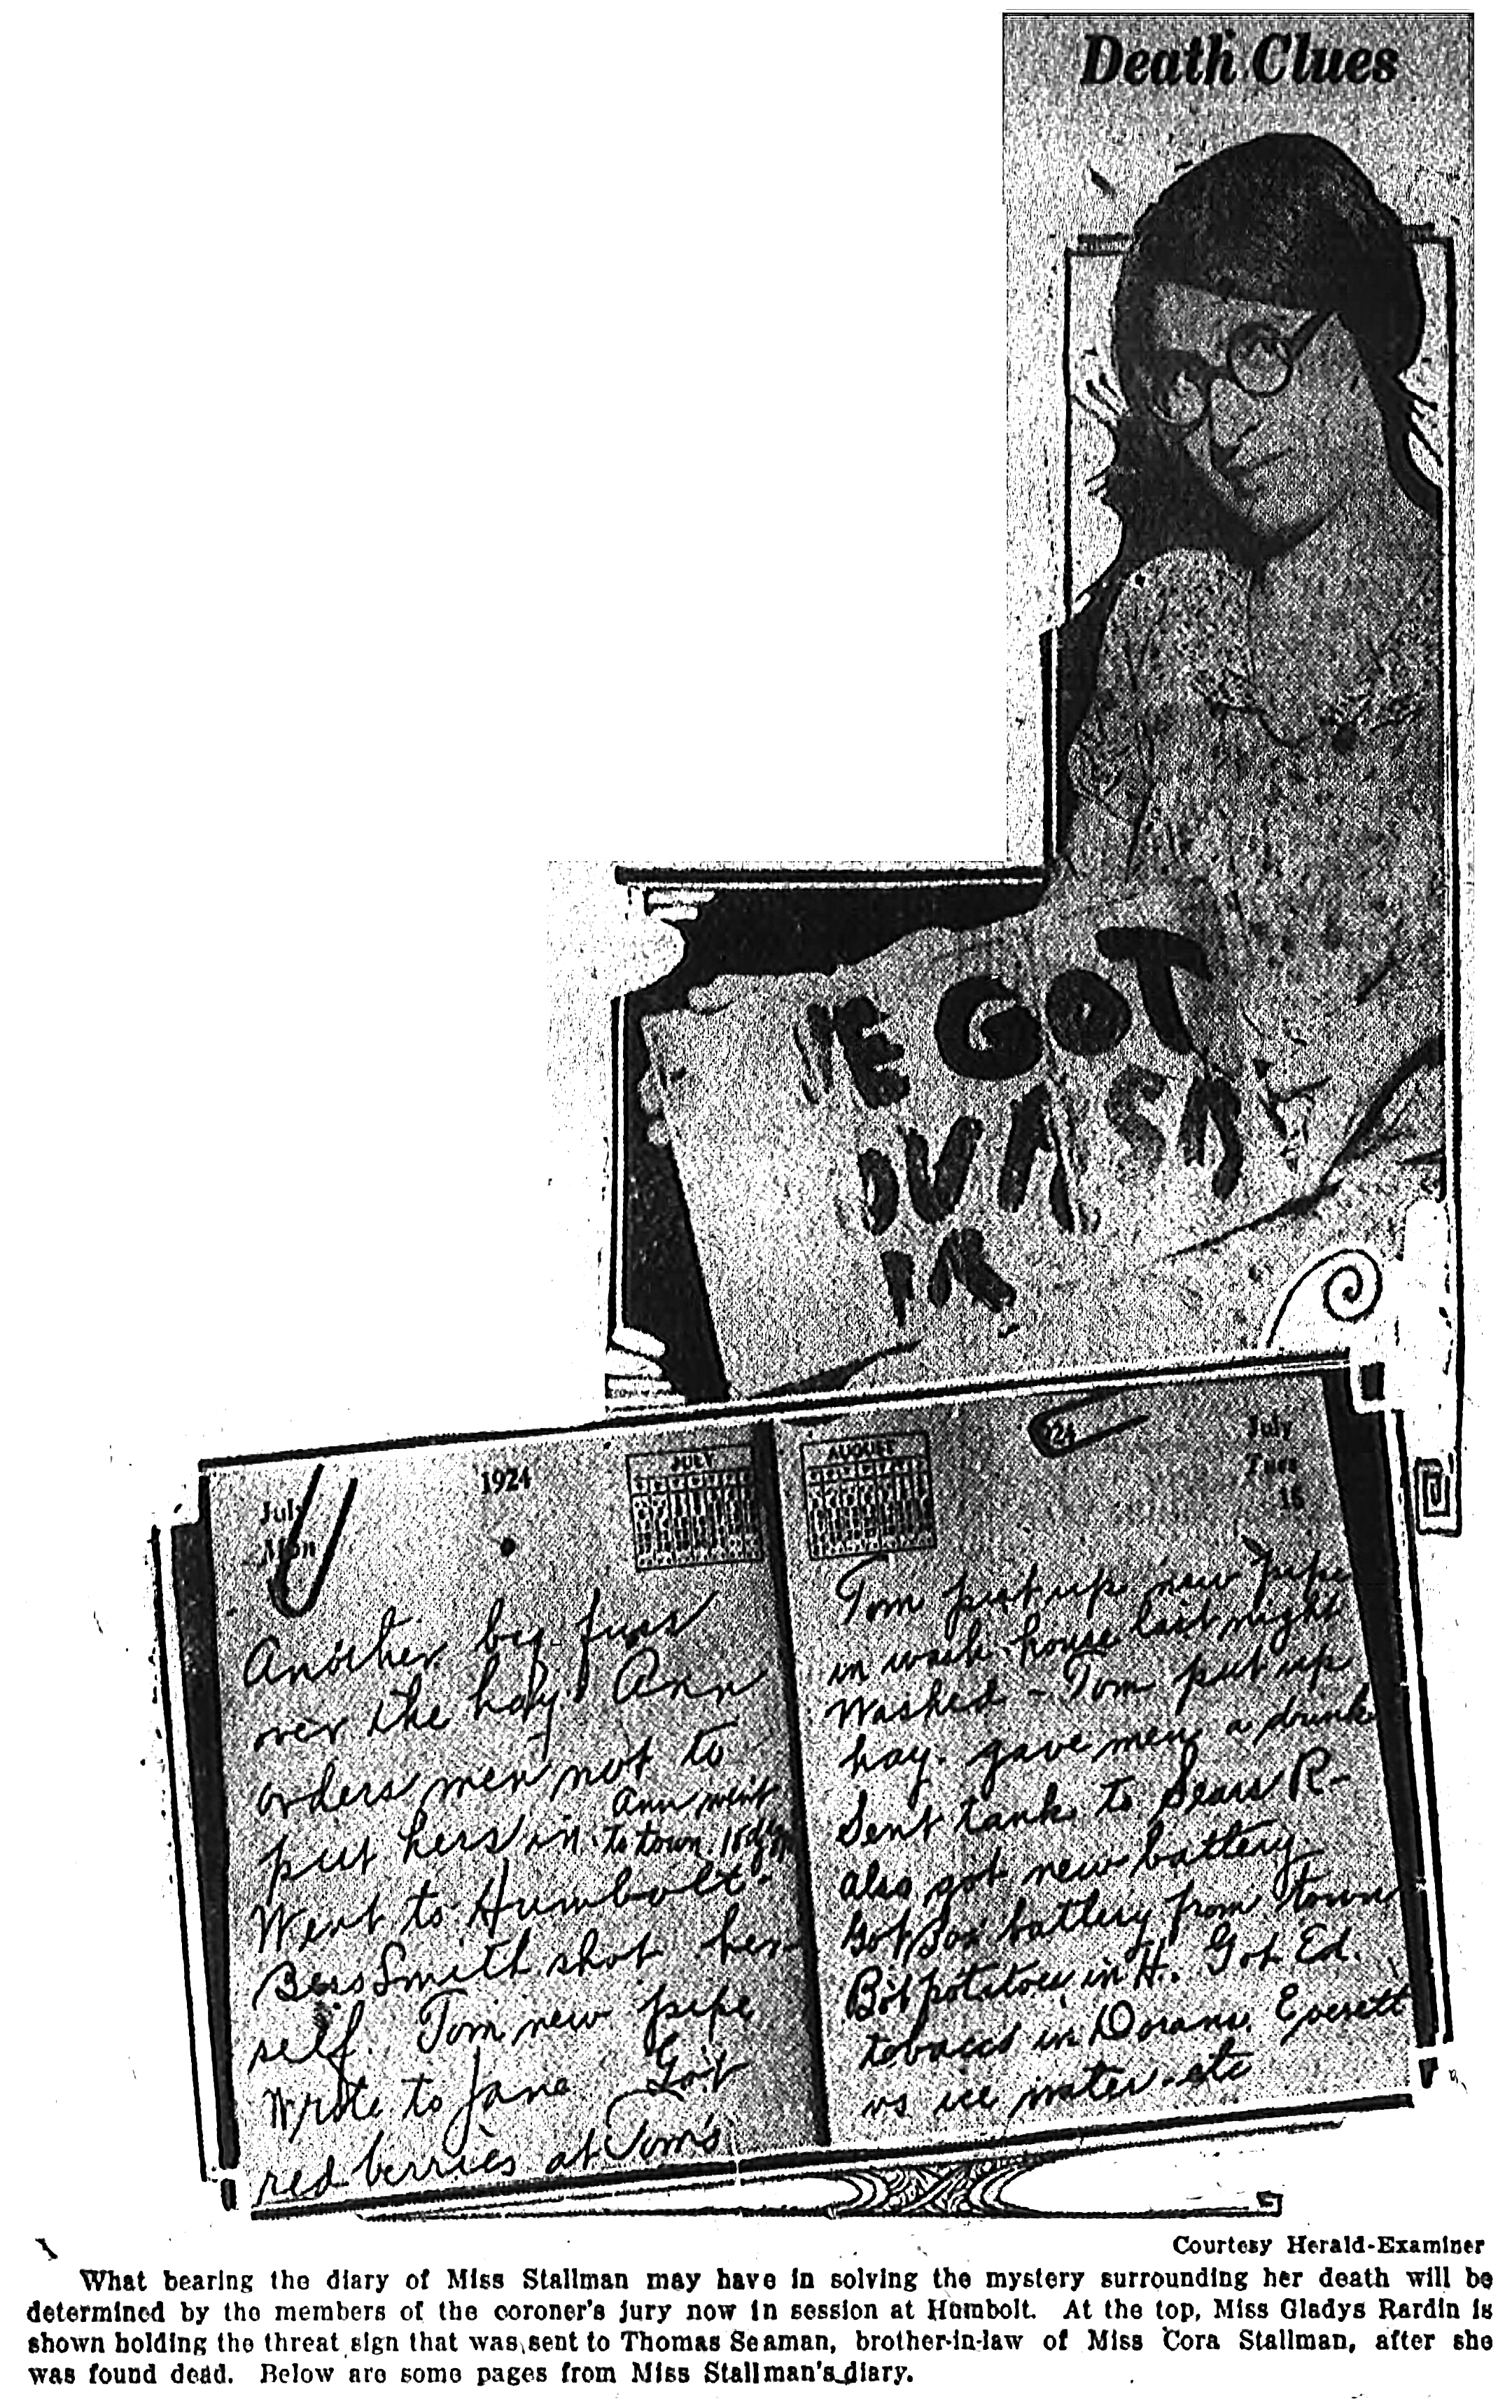 Death Clues
WE GOT
1924
JULY
July
Mon
Another big fuss
over the hay. Ann
orders men not to
put hers in. Ann went
to town
Went to Humbolt.
Bess Smith shot her-
self. Tom new pipe
Wrote to Jane Got
red berries at Tom's
AUGUST
24
July
Tues
15
Tom put up new pipe
in wash house last night
Washed - Tom put up
hay. gave men a drink
Sent tank to Sears R-
also got new battery
Got battery from town
Bot potatoes in H. Got Ed.
tobacco in Dorans. Everett
vs ice water - etc
Courtesy Herald-Examiner
What bearing the diary of Miss Stallman may have in solving the mystery surrounding her death will be
determined by the members of the coroner's jury now in session at Humbolt. At the top, Miss Gladys Rardin is
shown holding the threat sign that was sent to Thomas Seaman, brother-in-law of Miss Cora Stallman, after she
was found dead. Below are some pages from Miss Stallman's diary.